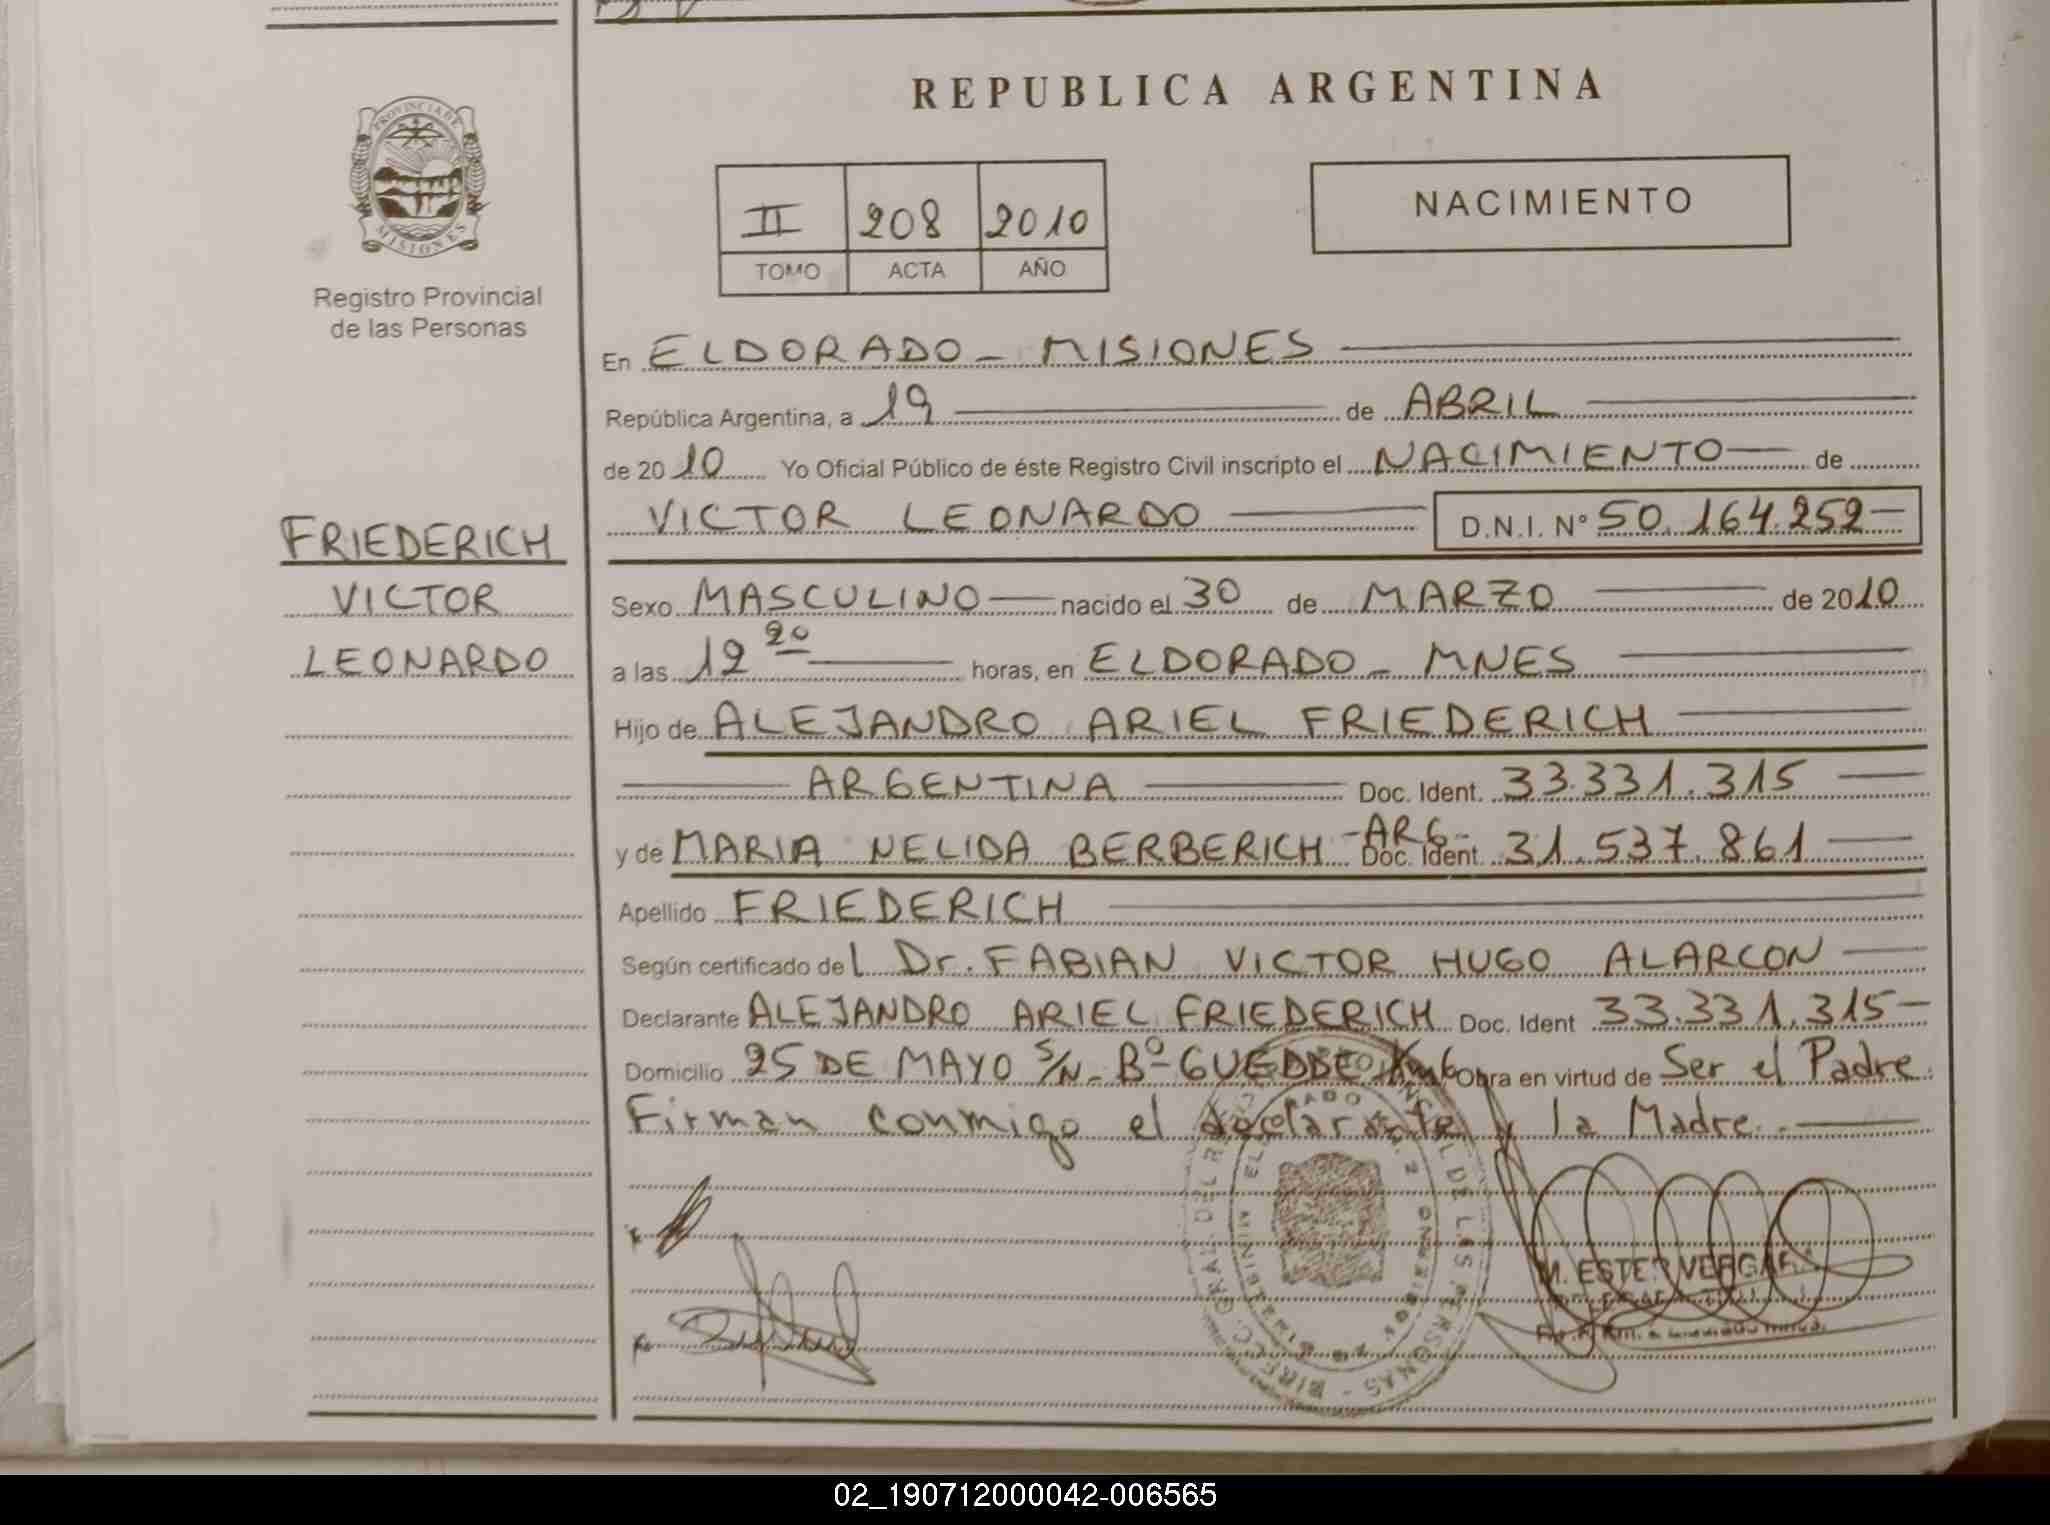 REPUBLICA ARGENTINA
PROVINCIA DE
MISIONES
Registro Provincial
de las Personas
II 208 2010
TOMO ACTA AÑO
NACIMIENTO
FRIEDERICH
VICTOR
LEONARDO
En ELDORADO - MISIONES
República Argentina, a 19 de ABRIL
de 2010 Yo Oficial Público de éste Registro Civil inscripto el NACIMIENTO de
VICTOR LEONARDO D.N.I. N° 50.164.252
Sexo MASCULINO nacido el 30 de MARZO de 2010
a las 12 20 horas, en ELDORADO - MNES
Hijo de ALEJANDRO ARIEL FRIEDERICH
ARGENTINA Doc. Ident. 33.331.315
y de MARIA NELIDA BERBERICH -ARG- Doc. Ident. 31.537.861
Apellido FRIEDERICH
Según certificado del Dr. FABIAN VICTOR HUGO ALARCON
Declarante ALEJANDRO ARIEL FRIEDERICH Doc. Ident 33.331.315
Domicilio 25 DE MAYO S/N - Bº GUEDDE Km 6 Obra en virtud de Ser el Padre
Firman conmigo el declarante y la Madre.
M. ESTER VERGARA
02_190712000042-006565